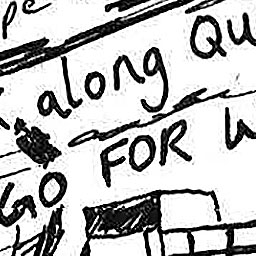 pe
along Qu
GO FOR W